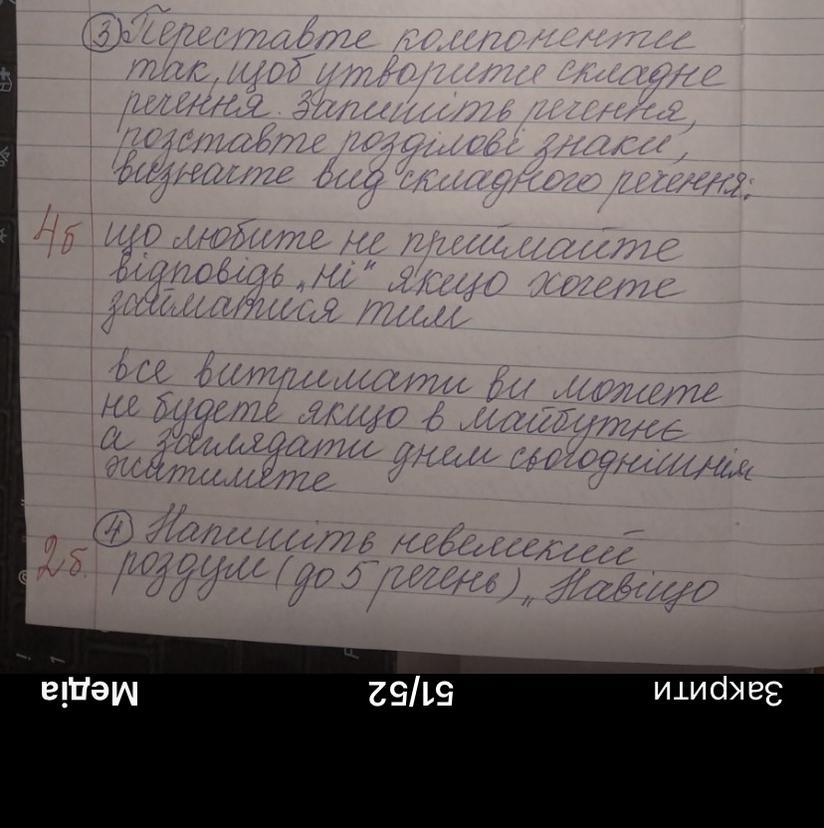 ③ Переставте компоненти
так, щоб утворити складне
речення. Запишіть речення,
розставте розділові знаки,
визначте вид складного речення:
4б що любите не приймайте
відповідь „ні“ якщо хочете
займатися тим
все витримати ви можете
не будете якщо в майбутнє
а заглядати днем сьогоднішнім
житимете
④ Напишіть невеликий
2б. роздум (до 5 речень) „Навіщо
Закрити 51/52 Медіа